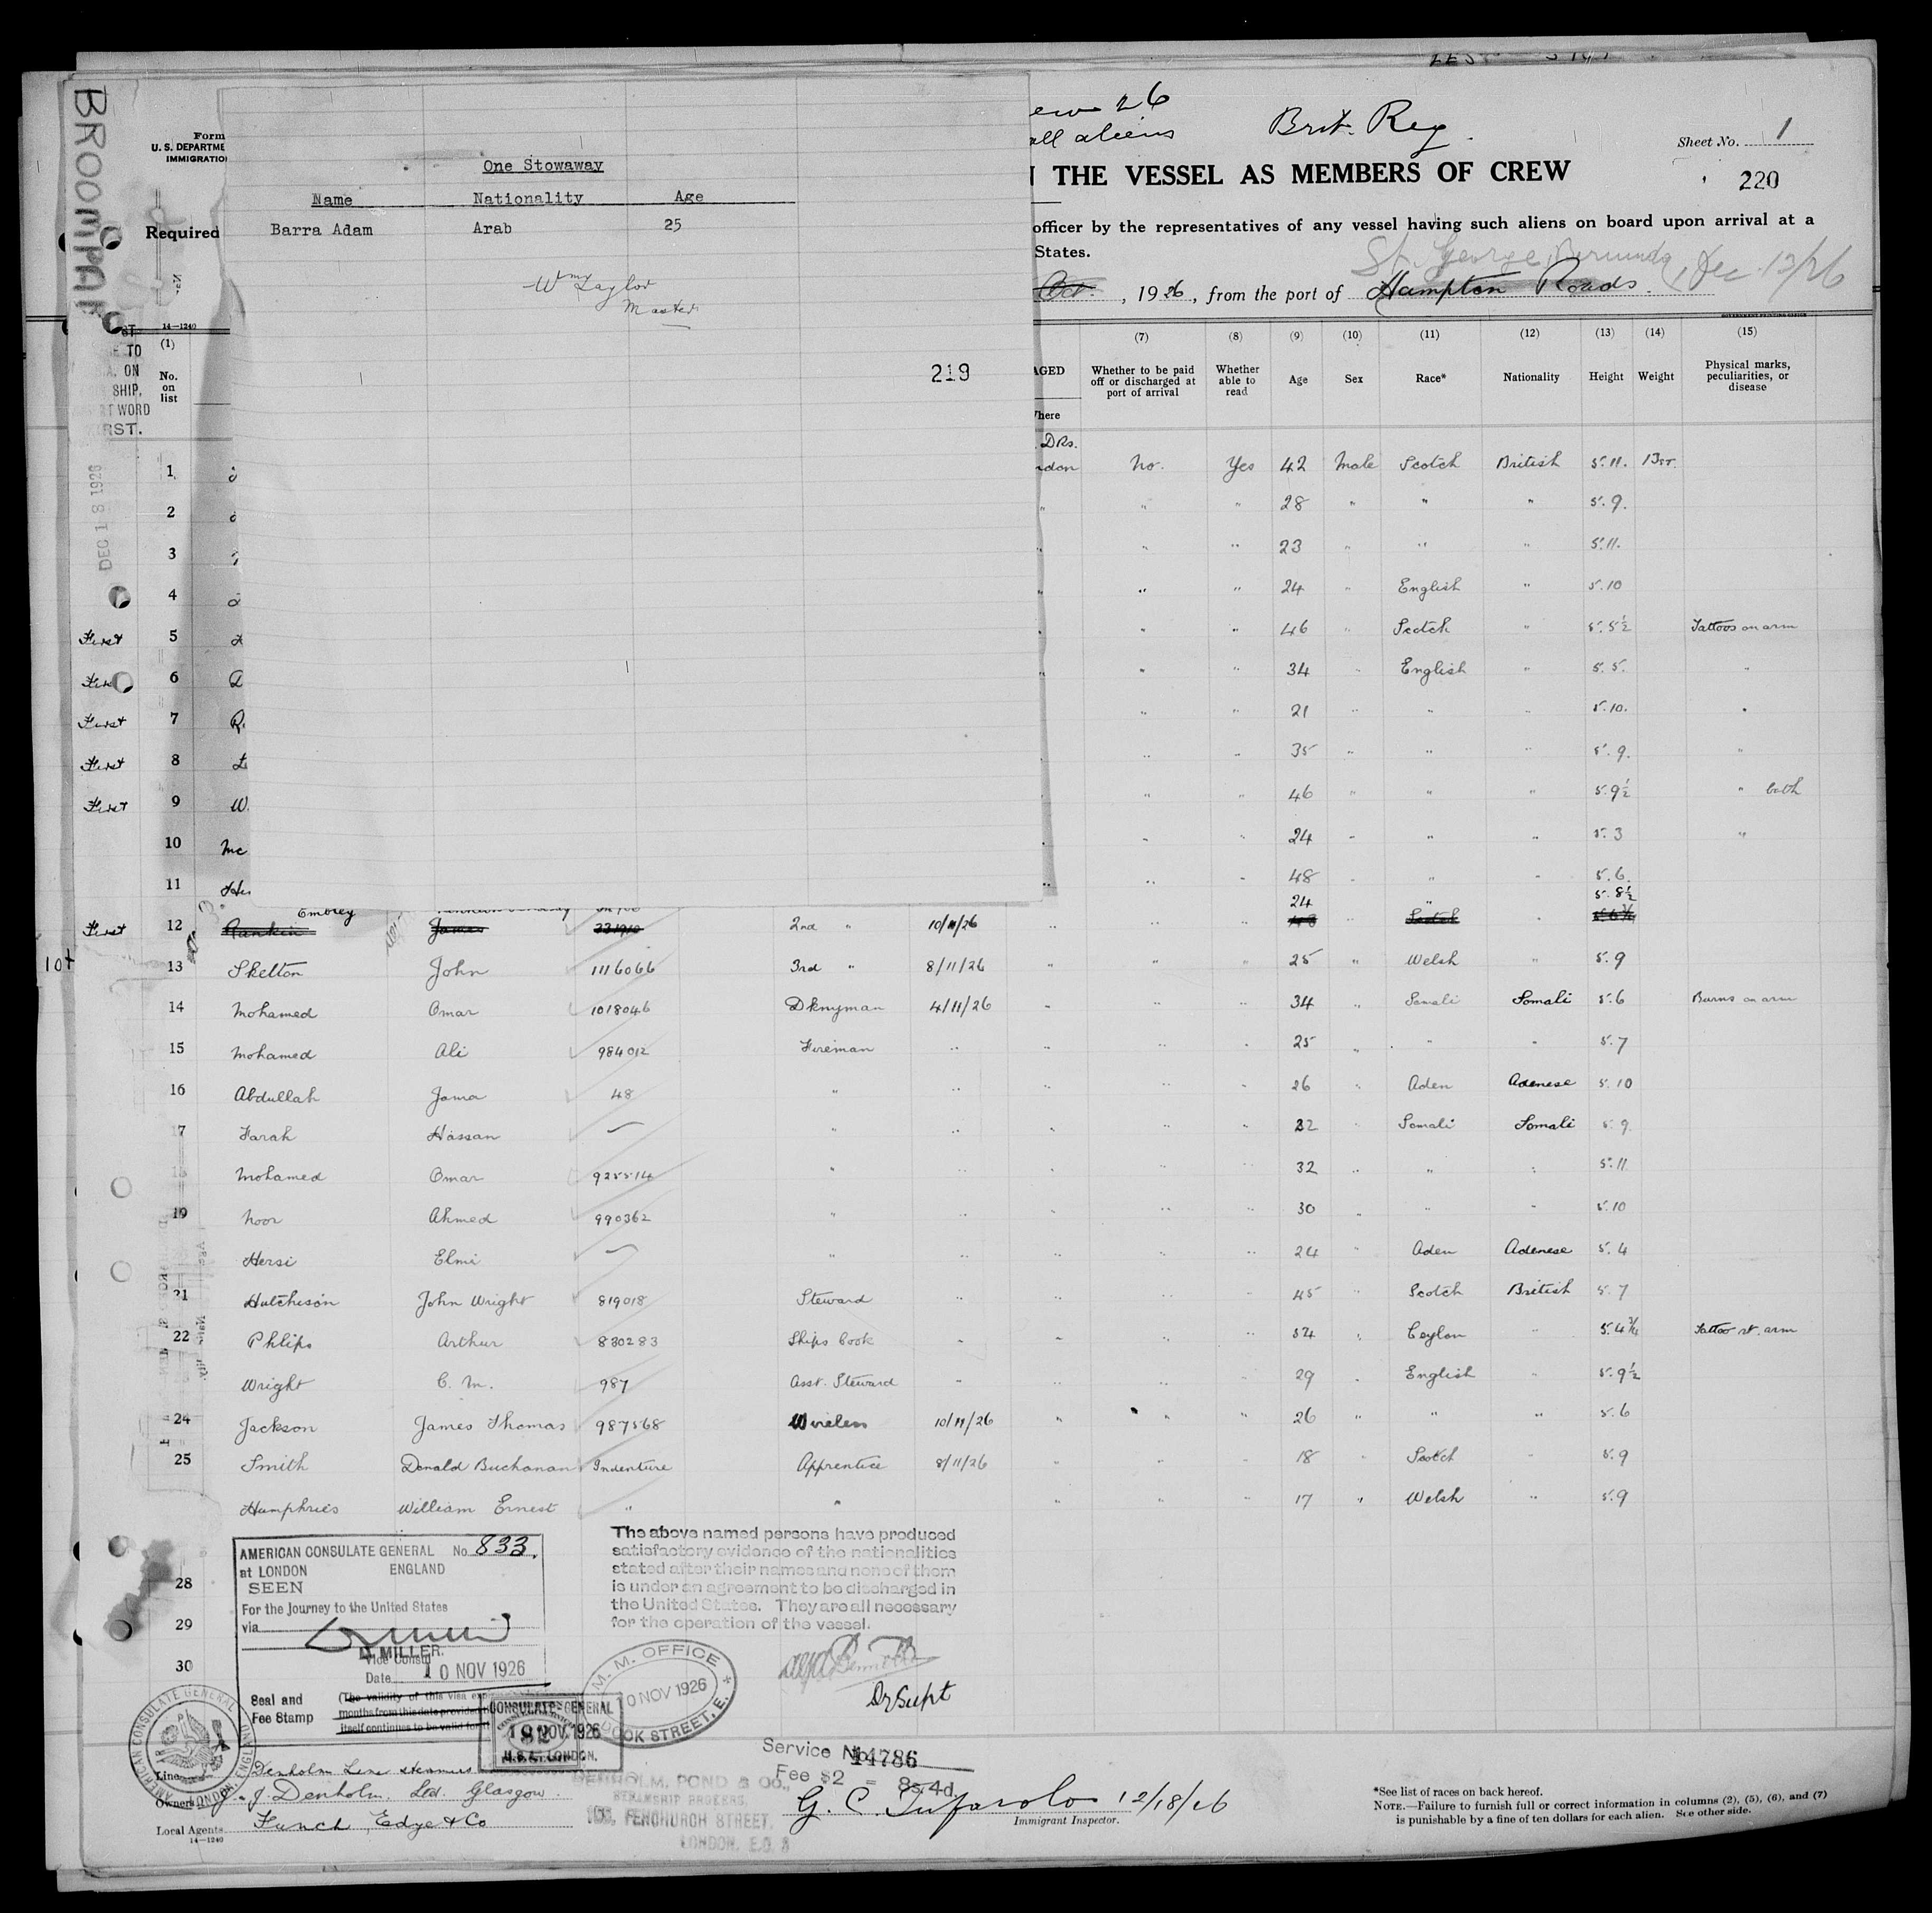 BROOMPAR
Form
U. S. DEPARTME
IMMIGRATIO
Required
One Stowaway
Name Nationality Age
Barra Adam Arab 25
Wm Taylor
Master
219
ew 26
all aliens
Brit. Reg.
Sheet No. 1
THE VESSEL AS MEMBERS OF CREW
220
officer by the representatives of any vessel having such aliens on board upon arrival at a
States.
St. George, Bermuda, Dec 13/26
Oct. , 1926, from the port of Hampton Roads.
GOVERNMENT PRINTING OFFICE
14—1240
TO
ON
SHIP,
WORD
RST.
DEC 18 1926
(1) (7) (8) (9) (10) (11) (12) (13) (14) (15)
No. on list
AGED
here
Whether to be paid off or discharged at port of arrival
Whether able to read
Age
Sex
Race*
Nationality
Height
Weight
Physical marks, peculiarities, or disease
DRs.
1 ndon No. Yes 42 Male Scotch British 5.11. 13st.
2 " " " 28 " " " 5.9.
3 " " 23 " " " 5.11.
4 " " 24 " English " 5.10
First 5 " " 46 " Scotch " 5.5½ Tattoos on arm
First 6 " " 34 " English " 5.5. "
First 7 R. " " 21 " " " 5.10. "
First 8 " " 35 " " " 5.9. "
First 9 W. " " 46 " " " 5.9½ " both
10 Mc " " 24 " " " 5.3 "
11 " " 48 " " " 5.6.
Embley 24 " 5.8½
First 12 Rankin James 2nd " 10/11/26 " " " " Scotch "
13 Skelton John 1116066 3rd " 8/11/26 " " " 25 " Welsh " 5.9
14 Mohamed Omar 1018046 Dknyman 4/11/26 " " " 34 " Somali Somali 5.6 Burns on arm
15 Mohamed Ali 984012 Fireman " " " " 25 " " " 5.7
16 Abdullah Jama 48 " " " " " 26 " Aden Adenese 5.10
17 Farah Hassan " " " " " 32 " Somali Somali 5.9
Mohamed Omar 925514 " " " " " 32 " " " 5.11
19 Noor Ahmed 990362 " " " " " 30 " " " 5.10
Hersi Elmi " " " " " 24 " Aden Adenese 5.4
21 Hutcheson John Wright 819018 Steward " " " " 45 " Scotch British 5.7
22 Phlips Arthur 830283 Ships Cook " " " " 34 " Ceylon " 5.4¾ Tattoo rt. arm
Wright C. M. 987 Asst. Steward " " " " 29 " English " 5.9½
24 Jackson James Thomas 987568 Wireless 10/11/26 " " " 26 " " " 5.6
25 Smith Donald Buchanan Indenture Apprentice 8/11/26 " " " 18 " Scotch " 5.9
Humphries William Ernest " " " " " 17 " Welsh " 5.9
28
29
30
AMERICAN CONSULATE GENERAL No. 833.
at LONDON ENGLAND
SEEN
For the Journey to the United States
via
D. MILLER.
Vice Consul
Date 10 NOV 1926
Seal and Fee Stamp
(The validity of this visa
months from this date provided
itself continues to be valid for
AMERICAN CONSULATE GENERAL LONDON, ENGLAND
CONSULATE-GENERAL
18 NOV. 1926
U.S.A. LONDON.
The above named persons have produced
satisfactory evidence of the nationalities
stated after their names and none of them
is under an agreement to be discharged in
the United States. They are all necessary
for the operation of the vessel.
M. M. OFFICE
10 NOV 1926
DOCK STREET, E.
Dy Supt
Service No. 14786
Fee $2 = 8s 4d.
Line Denholm Line Steamers
Owners J. J. Denholm. Ltd. Glasgow.
Local Agents Funch, Edye & Co
14—1240
DENHOLM, POND & Co.,
STEAMSHIP BROKERS,
103, FENCHURCH STREET,
LONDON, E.C. 3
G. C. Tufarolo 12/18/26
Immigrant Inspector.
*See list of races on back hereof.
NOTE.—Failure to furnish full or correct information in columns (2), (5), (6), and (7)
is punishable by a fine of ten dollars for each alien. See other side.